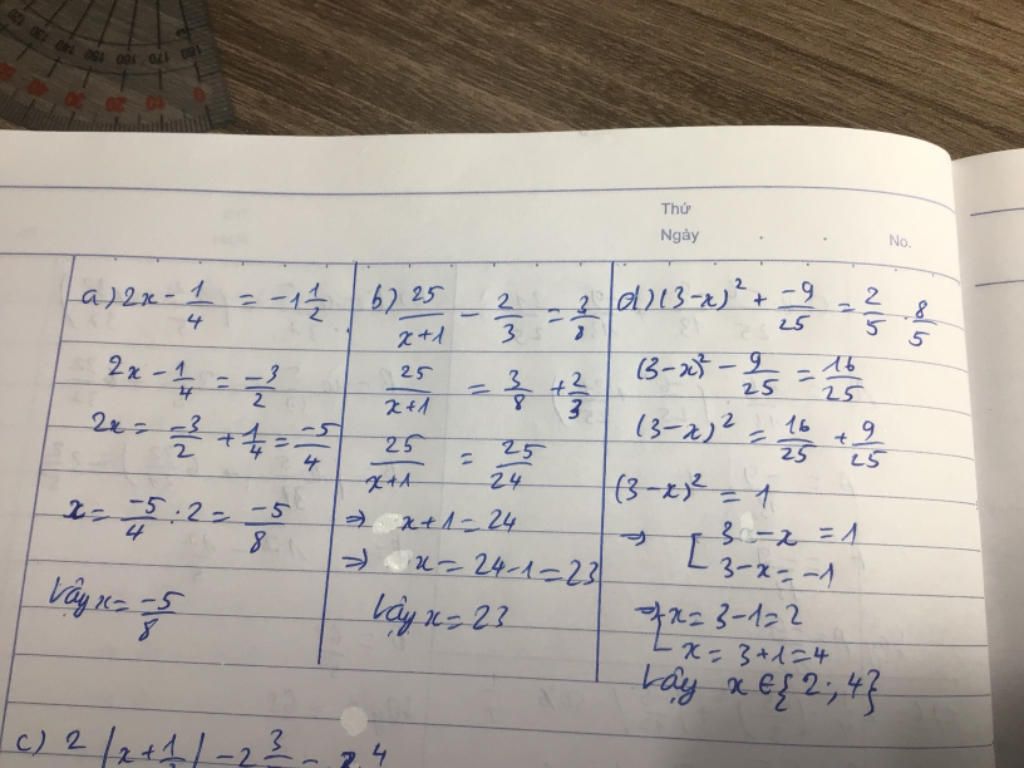 Thứ
Ngày
No.
a) 2x - 1/4 = -1 1/2
2x - 1/4 = -3/2
2x = -3/2 + 1/4 = -5/4
x = -5/4 : 2 = -5/8
Vậy x = -5/8
b) 25/x+1 - 2/3 = 3/8
25/x+1 = 3/8 + 2/3
25/x+1 = 25/24
⇒ x+1 = 24
⇒ x = 24-1 = 23
Vậy x = 23
d) (3-x)² + -9/25 = 2/5 . 8/5
(3-x)² - 9/25 = 16/25
(3-x)² = 16/25 + 9/25
(3-x)² = 1
⇒ [ 3-x = 1
3-x = -1
⇒ [ x = 3-1 = 2
x = 3+1 = 4
Vậy x ∈ {2; 4}
c) 2 |x + 1/ | - 2 3/